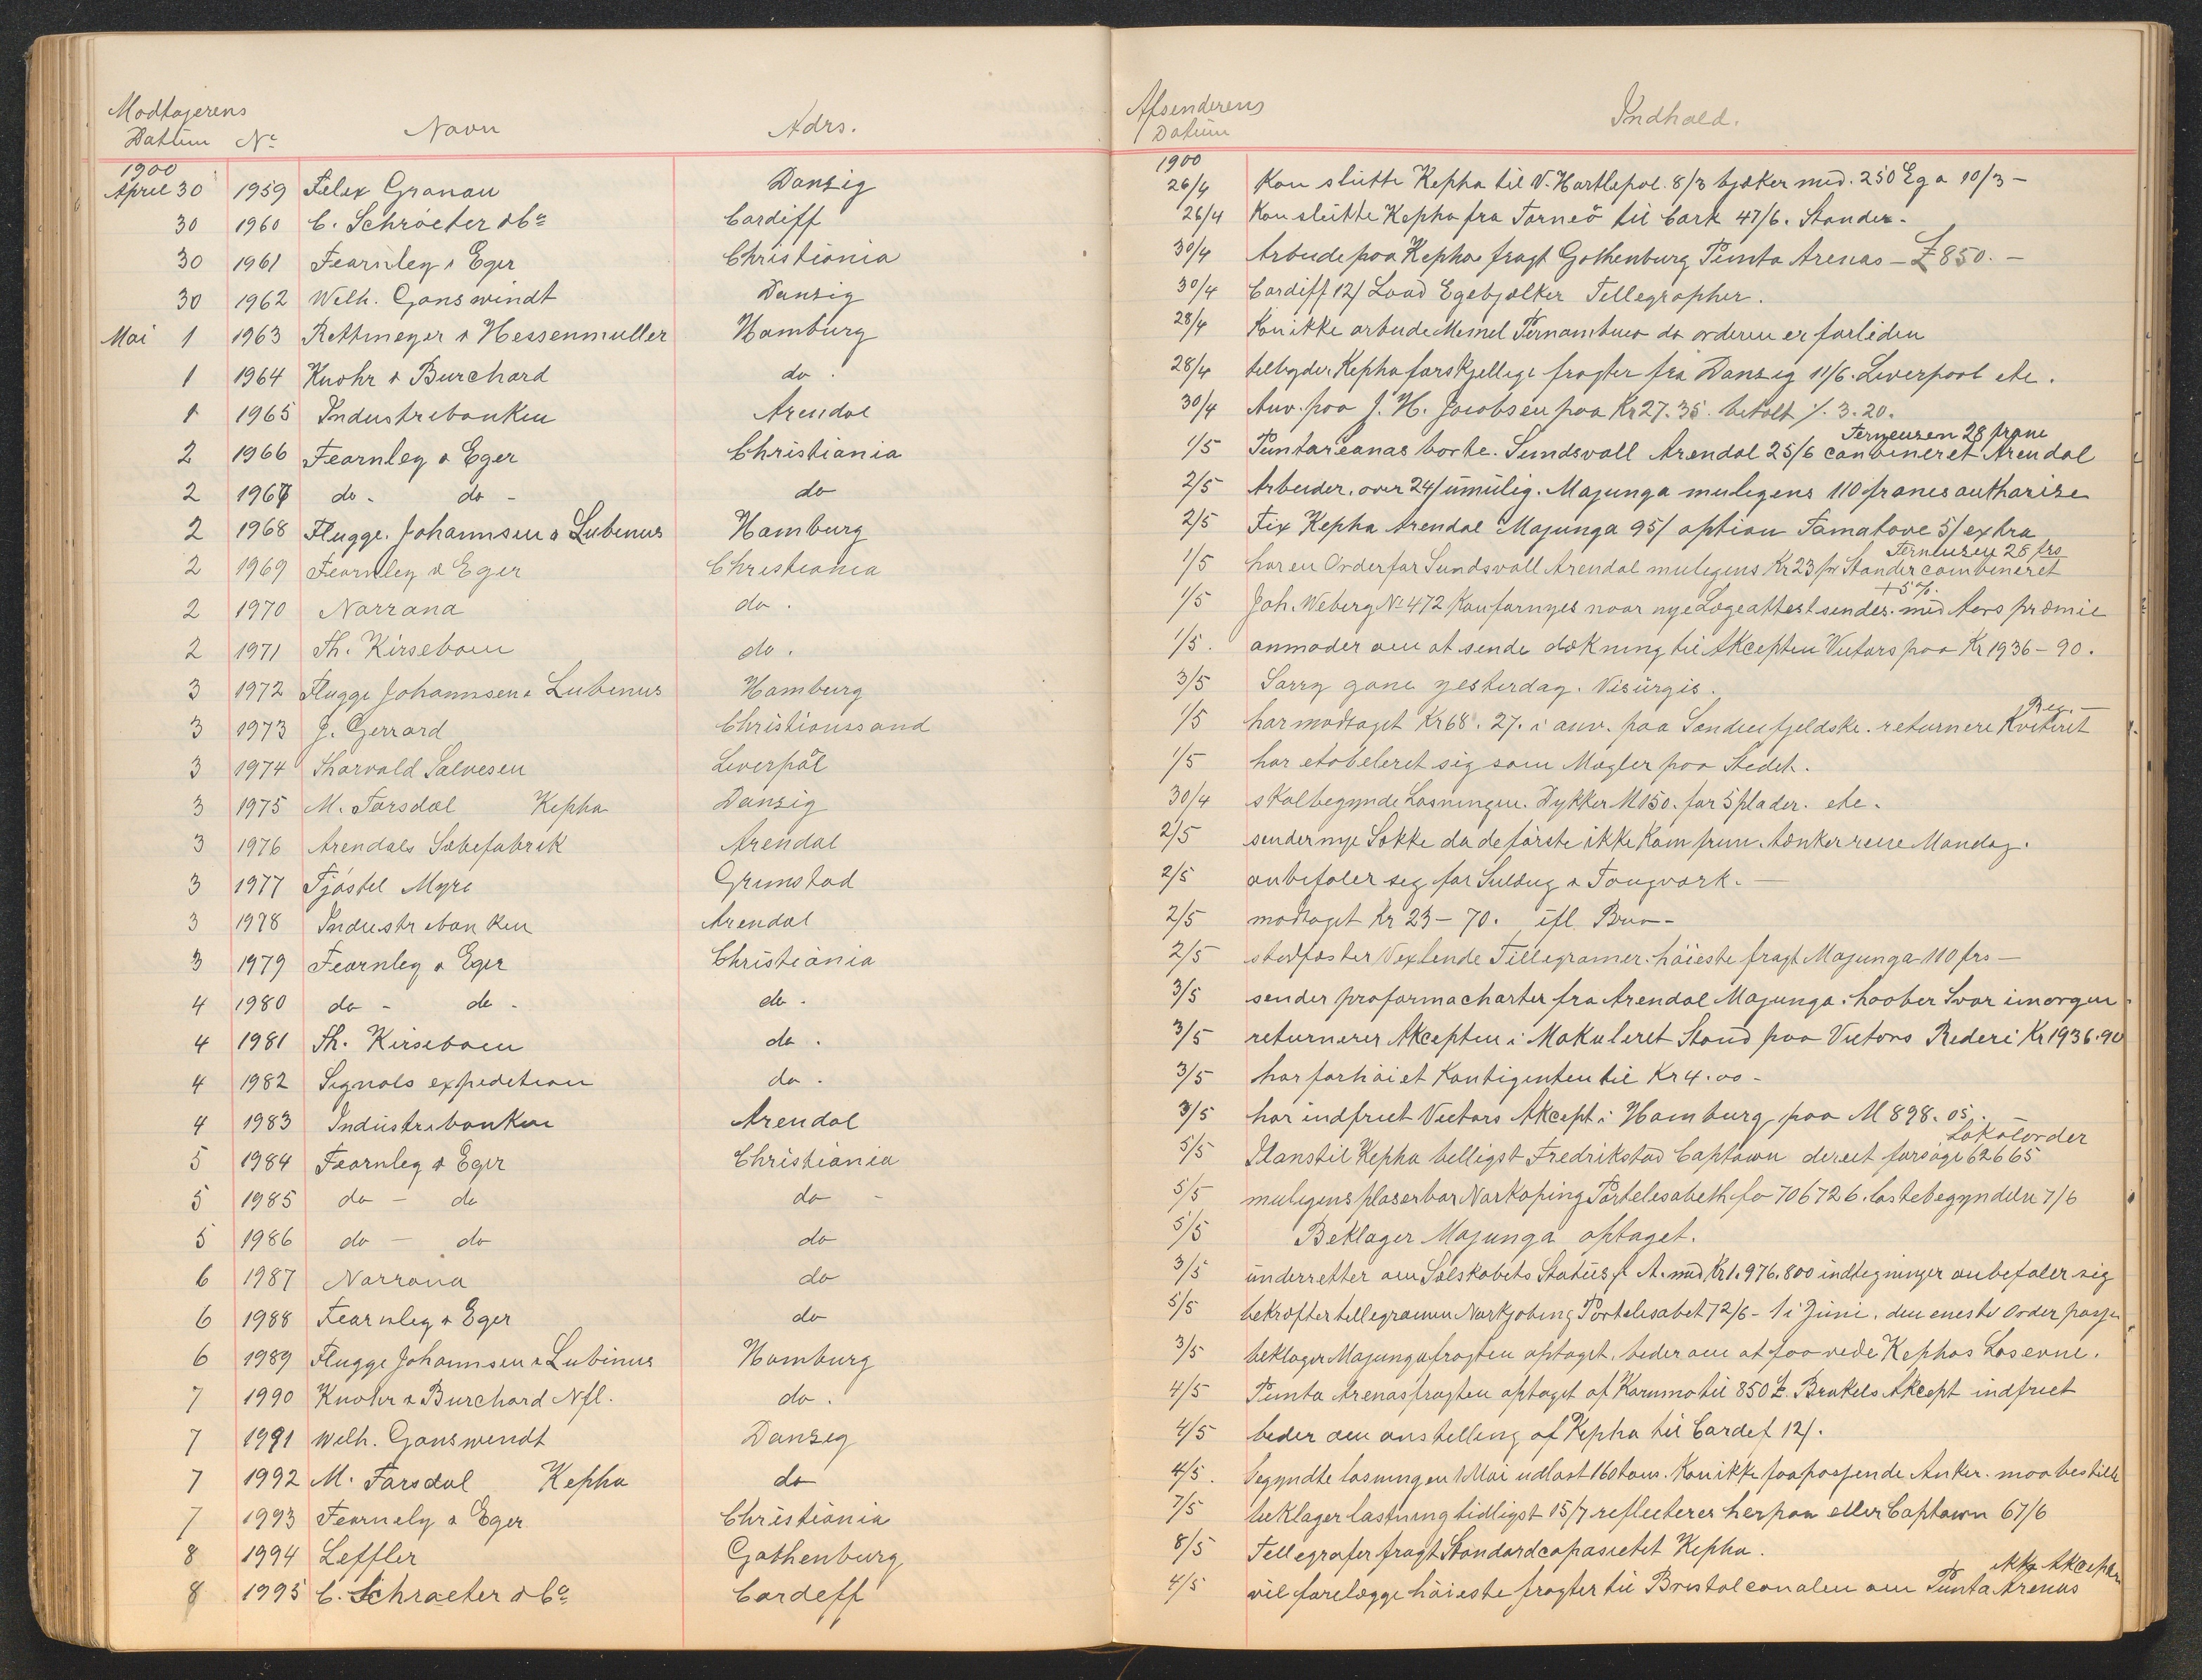 Modtagerens
Datum No Navn Adrs.
1900
April 30 1959 Felix Granau Danzig
30 1960 C. Schröeter & Co Cardiff
30 1961 Fearnley & Eger Christiania
30 1962 Wilh. Ganswindt Danzig
Mai 1 1963 Rettmeyer & Hessenmuller Hamburg
1 1964 Knohr & Burchard do.
1 1965 Industribanken Arendal
2 1966 Fearnley & Eger Christiania
2 1967 do - do - do
2 1968 Flugge. Johannsen & Lubinus Hamburg
2 1969 Fearnley & Eger Christiania
2 1970 Norrøna do.
2 1971 Th. Kirsebom do.
3 1972 Flugge Johannsen & Lubinus Hamburg
3 1973 J. Gerrard Christianssand
3 1974 Thorvald Salvesen Liverpol
3 1975 M. Tarsdal Kepha Danzig
3 1976 Arendals Sæbefabrik Arendal
3 1977 Tjöstel Myre Grimstad
3 1978 Industribanken Arendal
3 1979 Fearnley & Eger Christiania
4 1980 do - do - do.
4 1981 Th. Kirseboem do.
4 1982 Signals expedition do.
4 1983 Industribanken Arendal
5 1984 Fearnley & Eger Christiania
5 1985 do - do do -
5 1986 do - do do
6 1987 Norrøna do
6 1988 Fearnley & Eger do
6 1989 Flugge Johannsen & Lubinus Hamburg
7 1990 Knohr & Burchard Nfl. do.
7 1991 Wilh. Ganswindt Danzig
7 1992 M. Tarsdal Kepha do
7 1993 Fearnely & Eger Christiania
8 1994 Leffler Gothenburg
8 1995 C. Schraeter & Co Cardeff
Afsenderens
Datum Indhold.
1900
26/4 Kan slutte Kepha til V. Hartlepol. 8/3 bjælker med. 250 Eg a 10/3 -
26/4 Kan slutte Kepha fra Torneö til Cark 47/6. Stander.
30/4 Arbeide paa Kepha fragt Gothenburg Punta Arenas - £850. -
30/4 Cardiff 12/ Load Egebjælker Tellegrapher.
28/4 Kan ikke arbeide Memel Pernambuco da orderen er forliden
28/4 tilbyder Kepha forskjellige fragter fra Danzig 11/6. Liverpool etc.
30/4 Anv. paa J. H. Jacobsen paa Kr 27.35. betalt /. 3.20.
Terneuzen 28 franc
1/5 Puntareanas borte. Sundsvall Arendal 25/6 combineret Arendal
2/5 Arbeider. over 24/ umulig. Majunga muligens 110 francs autharize
2/5 Fix Kepha Arendal Majunga 95/ option Tamatave 5/ extra
Terneuzen 28 frs
1/5 har en Order for Sundsvall Arendal muligens Kr 23 pr Stander combineret
+ 5%.
1/5 Joh. Weberg No 472 Kan fornyes naar nye Lægeattest sendes. med Aars præmie
1/5. anmoder om at sende dækning til Akcepten Victors paa Kr 1936-90.
3/5 Sorry gone yesterday. Visurgis.
Reg. -
1/5 har modtaget Kr 68. 27. i anv. paa Søndenfjeldske. returnere Kviteret
1/5 har etableret sig som Mægler paa Stedet.
30/4 skal begynde Losningen. Dykker M 150. for 5 plader. etc.
2/5 sender nye Sække da de første ikke kom frem. tænker reise Mandag.
2/5 anbefaler sig for Seildug & Tougværk. -
2/5 modtaget Kr 23 - 70. ifl. Brev -
2/5 stadfæster Vexlende Tillegramer. høieste fragt Majunga 110 frs -
3/5 sender proformacharter fra Arendal Majunga. haaber Svar imorgen
3/5 returnerer Akcepten i Makuleret Stand paa Victors Rederi Kr 1936.90
3/5 har forhøiet Kontigenten til Kr 4.00 -
3/5 har indfriet Victors Akcept i Hamburg paa M 898.05. -
Lokalorder
5/5 Ilanstil Kepha billigst Fredrikstad Captawn direct forsøge 62665
5/5 muligens plaserbar Norkøping Portelesabeth fo 706726. lastebegyndelse 7/6
5/5 Beklager Majunga optaget.
3/5 underretter om Sælskabets Status f. A. med Kr 1.976.800 indtegninger anbefaler sig
5/5 bekræfter tellegramen Norkjøbing Portelesabet 72/6 - 1 i Juni. den eneste Order
3/5 beklager Majungafragten optaget. beder om at faa vide Kephas Losevne.
4/5 Punta Arenasfragten optaget af Karnmo til 850 £. Brakels Akcept indfriet
4/5 beder om anstilling af Kepha til Cardef 12/.
4/5. begyndte losningen 1 Mai udlost 160 tons. Kan ikke faa passende Anker. maa bestille
7/5 beklager lastning tidligst 15/7 reflecterer herpaa eller Captawn 67/6
8/5 Tellegrafer fragt Standardcapasietet Kepha.
ikke Akcepter
4/5 vil forelægge høieste fragter til Bristolcanalen om Punta Arenas